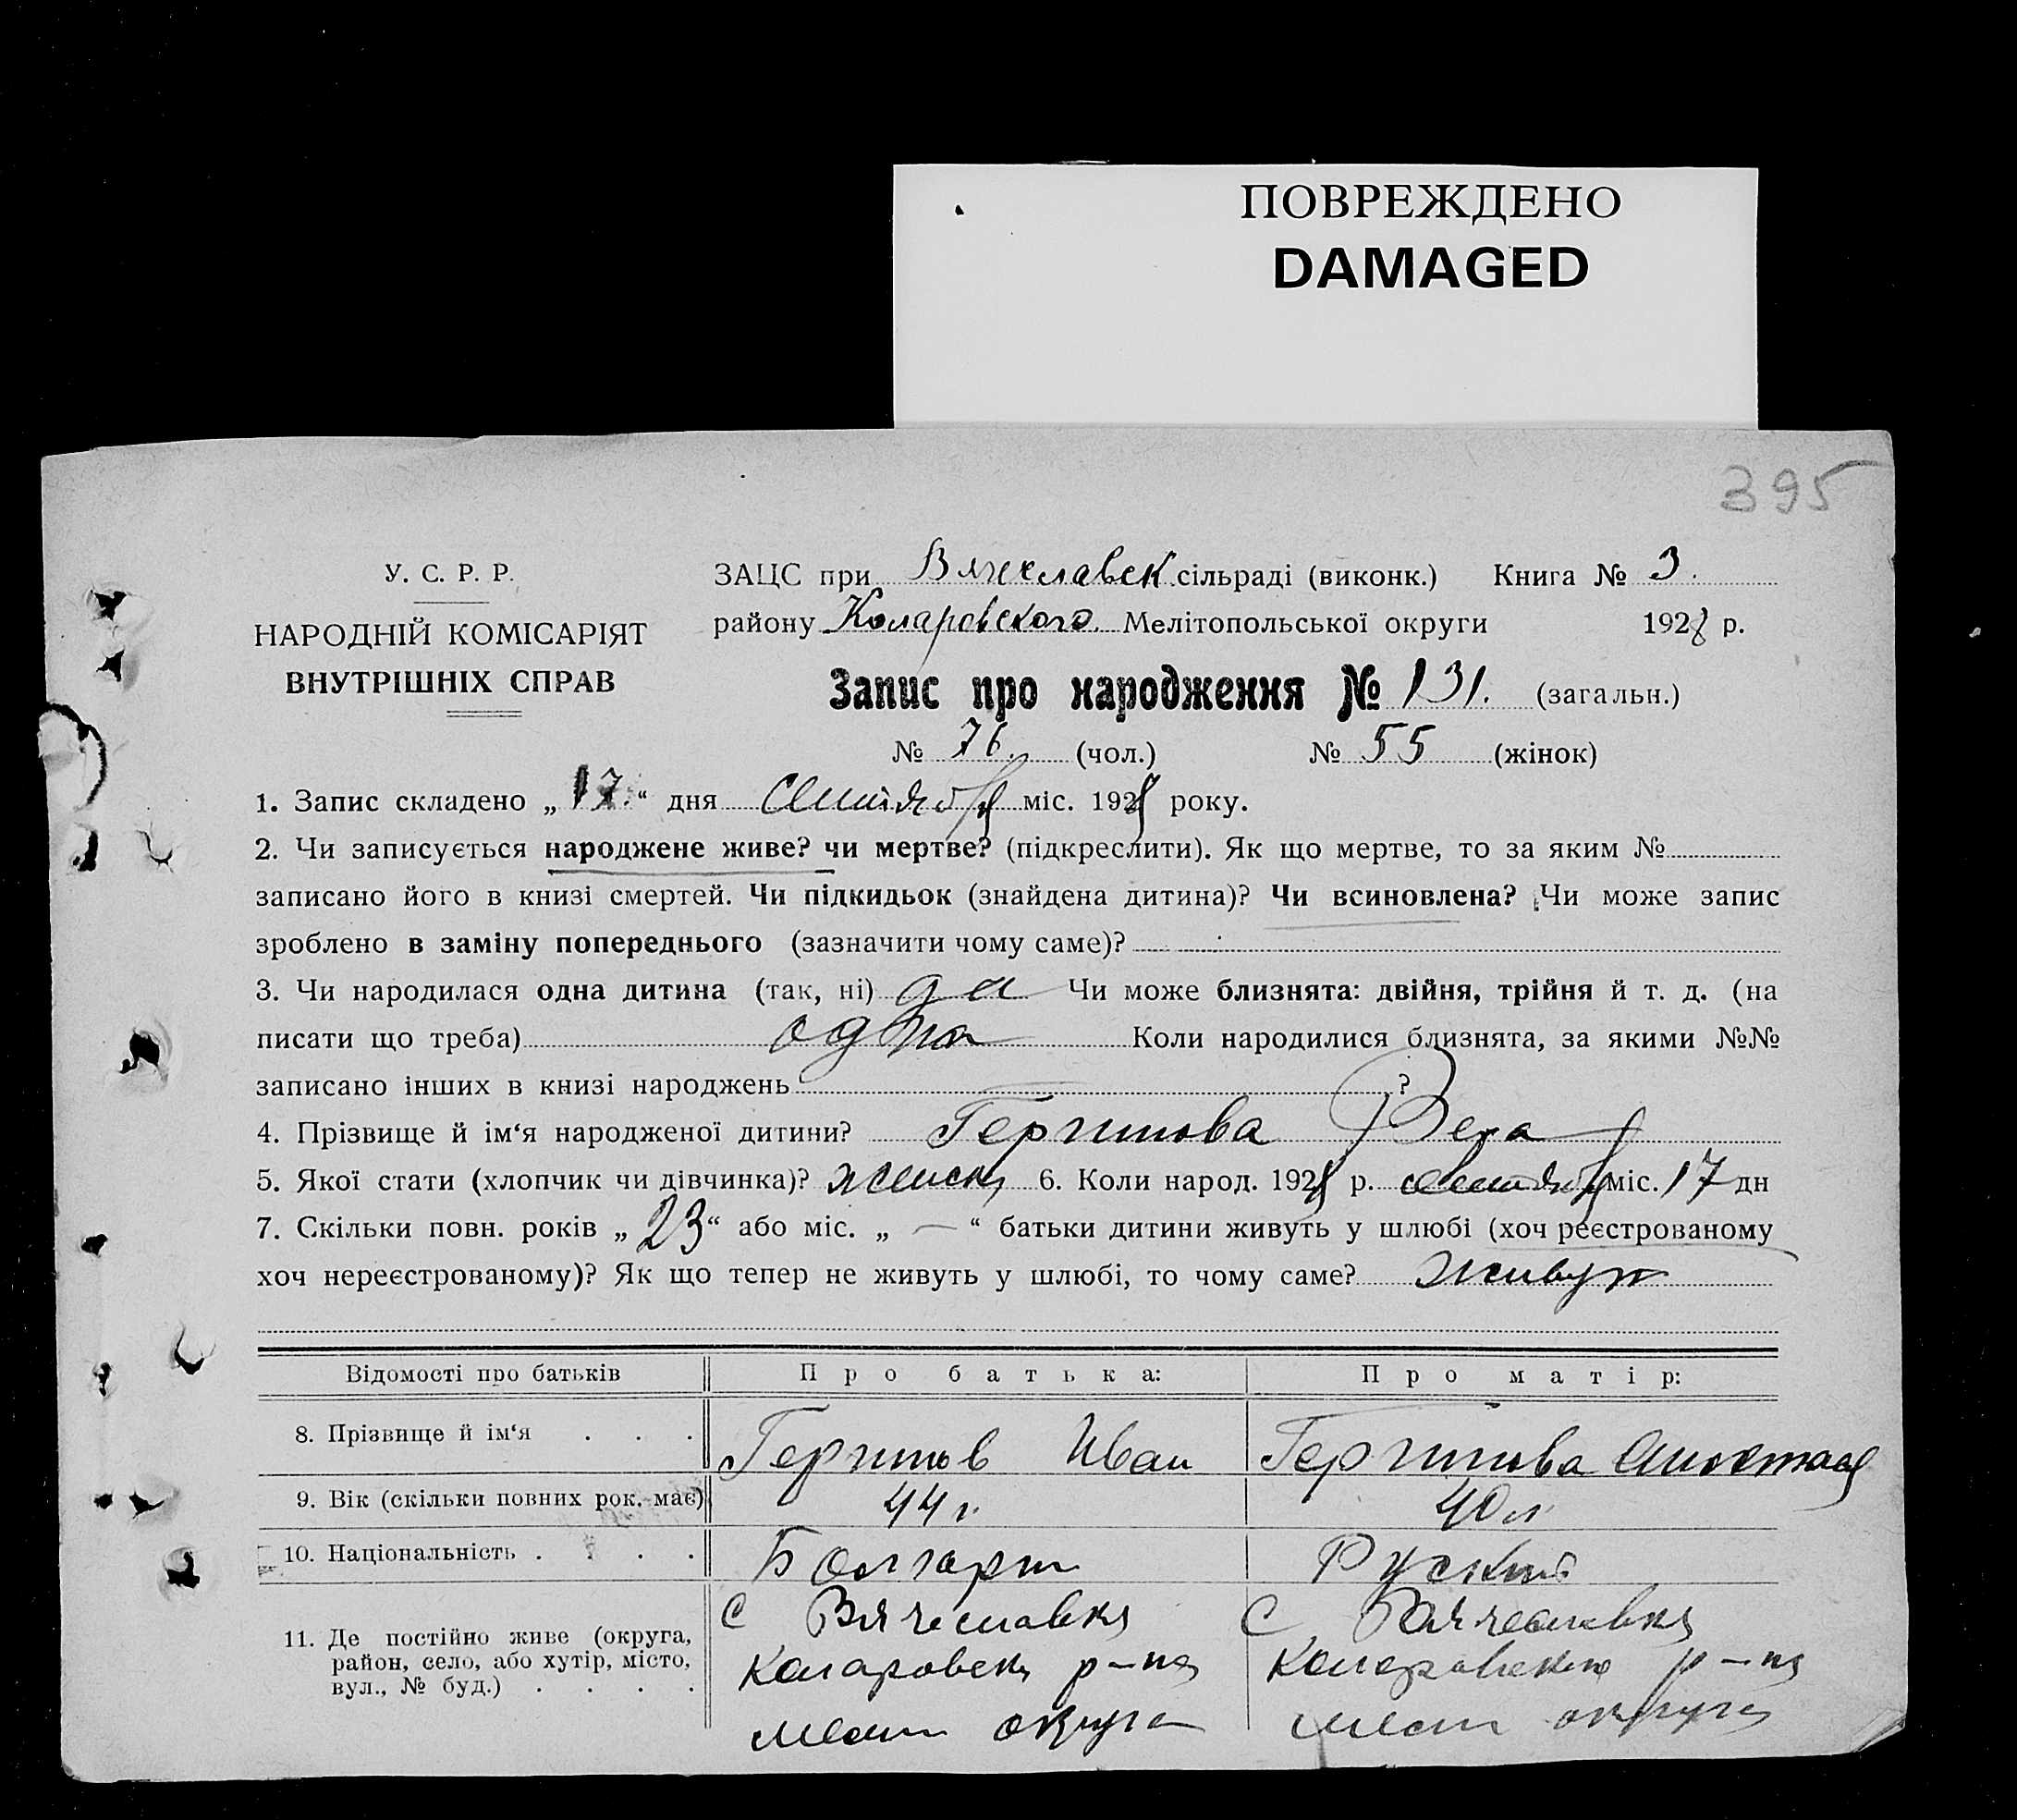 ПОВРЕЖДЕНО
DAMAGED
395
У. С. Р. Р.
НАРОДНІЙ КОМІСАРІЯТ
ВНУТРІШНІХ СПРАВ
ЗАЦС при Вячеславск сільраді (виконк.) Книга № 3.
району Коларовского Мелітопольської округи 1928 р.
Запис про народження № 131. (загальн.)
№ 76. (чол.) № 55 (жінок)
1. Запис складено „17.“ дня Сентября міс. 1928 року.
2. Чи записується народжене живе? чи мертве? (підкреслити). Як що мертве, то за яким №
записано його в книзі смертей. Чи підкидьок (знайдена дитина)? Чи всиновлена? Чи може запис
зроблено в заміну попереднього (зазначити чому саме)?
3. Чи народилася одна дитина (так, ні) да Чи може близнята: двійня, трійня й т. д. (на
писати що треба) одна Коли народилися близнята, за якими №№
записано інших в книзі народжень ?
4. Прізвище й ім‘я народженої дитини? Гергинова Вера
5. Якої стати (хлопчик чи дівчинка)? женск 6. Коли народ. 1928 р. сентября міс. 17 дн
7. Скільки повн. років „23“ або міс. „—“ батьки дитини живуть у шлюбі (хоч реєстрованому
хоч нереєстрованому)? Як що тепер не живуть у шлюбі, то чому саме? живут
Відомості про батьків Про батька: Про матір:
8. Прізвище й ім‘я . . . Гергинов Иван Гергинова Анастас
9. Вік (скільки повних рок. має) 44 г. 40 л
10. Національність . . . . Болгарин Руский
11. Де постійно живе (округа, с Вячеславка с Вячеславка
район, село, або хутір, місто, Коларовск р-на Коларовского р-на
вул., № буд.) . . . . Мелит округа Мелит округа